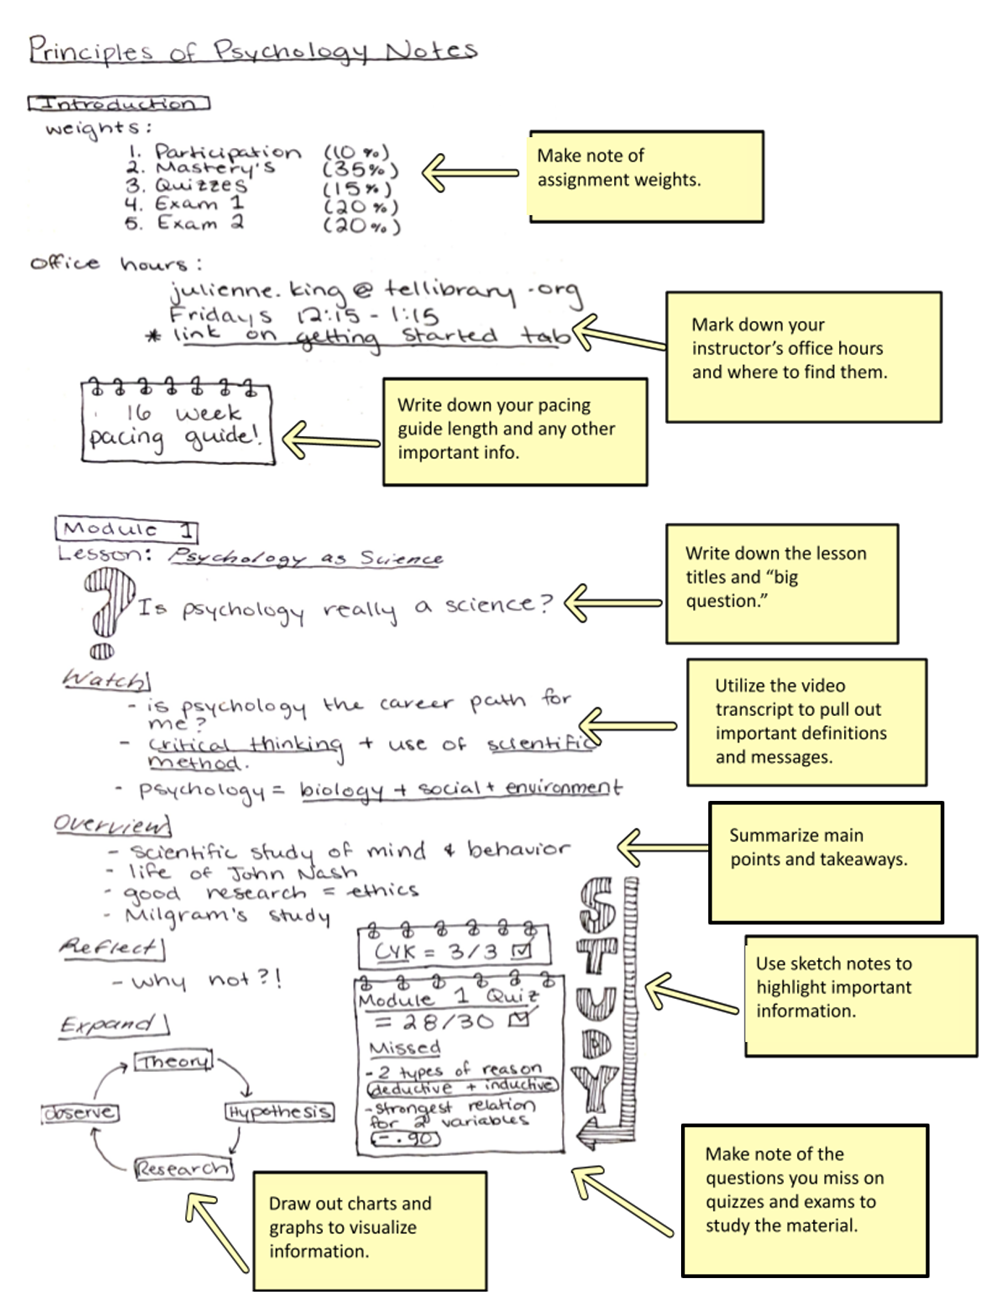 Principles of Psychology Notes
Introduction
weights:
1. Participation (10%)
2. Mastery's (35%)
3. Quizzes (15%)
4. Exam 1 (20%)
5. Exam 2 (20%)
Make note of
assignment weights.
office hours:
julienne.king@tellibrary.org
Fridays 12:15 - 1:15
* link on getting started tab
Mark down your
instructor's office hours
and where to find them.
16 week
pacing guide!
Write down your pacing
guide length and any other
important info.
Module 1
Lesson: Psychology as Science
? Is psychology really a science?
Write down the lesson
titles and “big
question.”
Watch
- is psychology the career path for
me?
- critical thinking + use of scientific
method.
- psychology = biology + social + environment
Utilize the video
transcript to pull out
important definitions
and messages.
Overview
- scientific study of mind & behavior
- life of John Nash
- good research = ethics
- Milgram's study
Summarize main
points and takeaways.
Reflect
- why not?!
CYK = 3/3
Module 1 Quiz
= 28/30
Missed
- 2 types of reason
deductive + inductive
- strongest relation
for 2 variables
-.90
STUDY
Use sketch notes to
highlight important
information.
Expand
Theory
Hypothesis
Research
observe
Draw out charts and
graphs to visualize
information.
Make note of the
questions you miss on
quizzes and exams to
study the material.